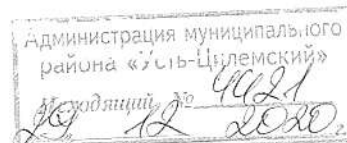 Администрация муниципального
района «Усть-Цилемский»
Исходящий № 4421
29 12 2020 г.